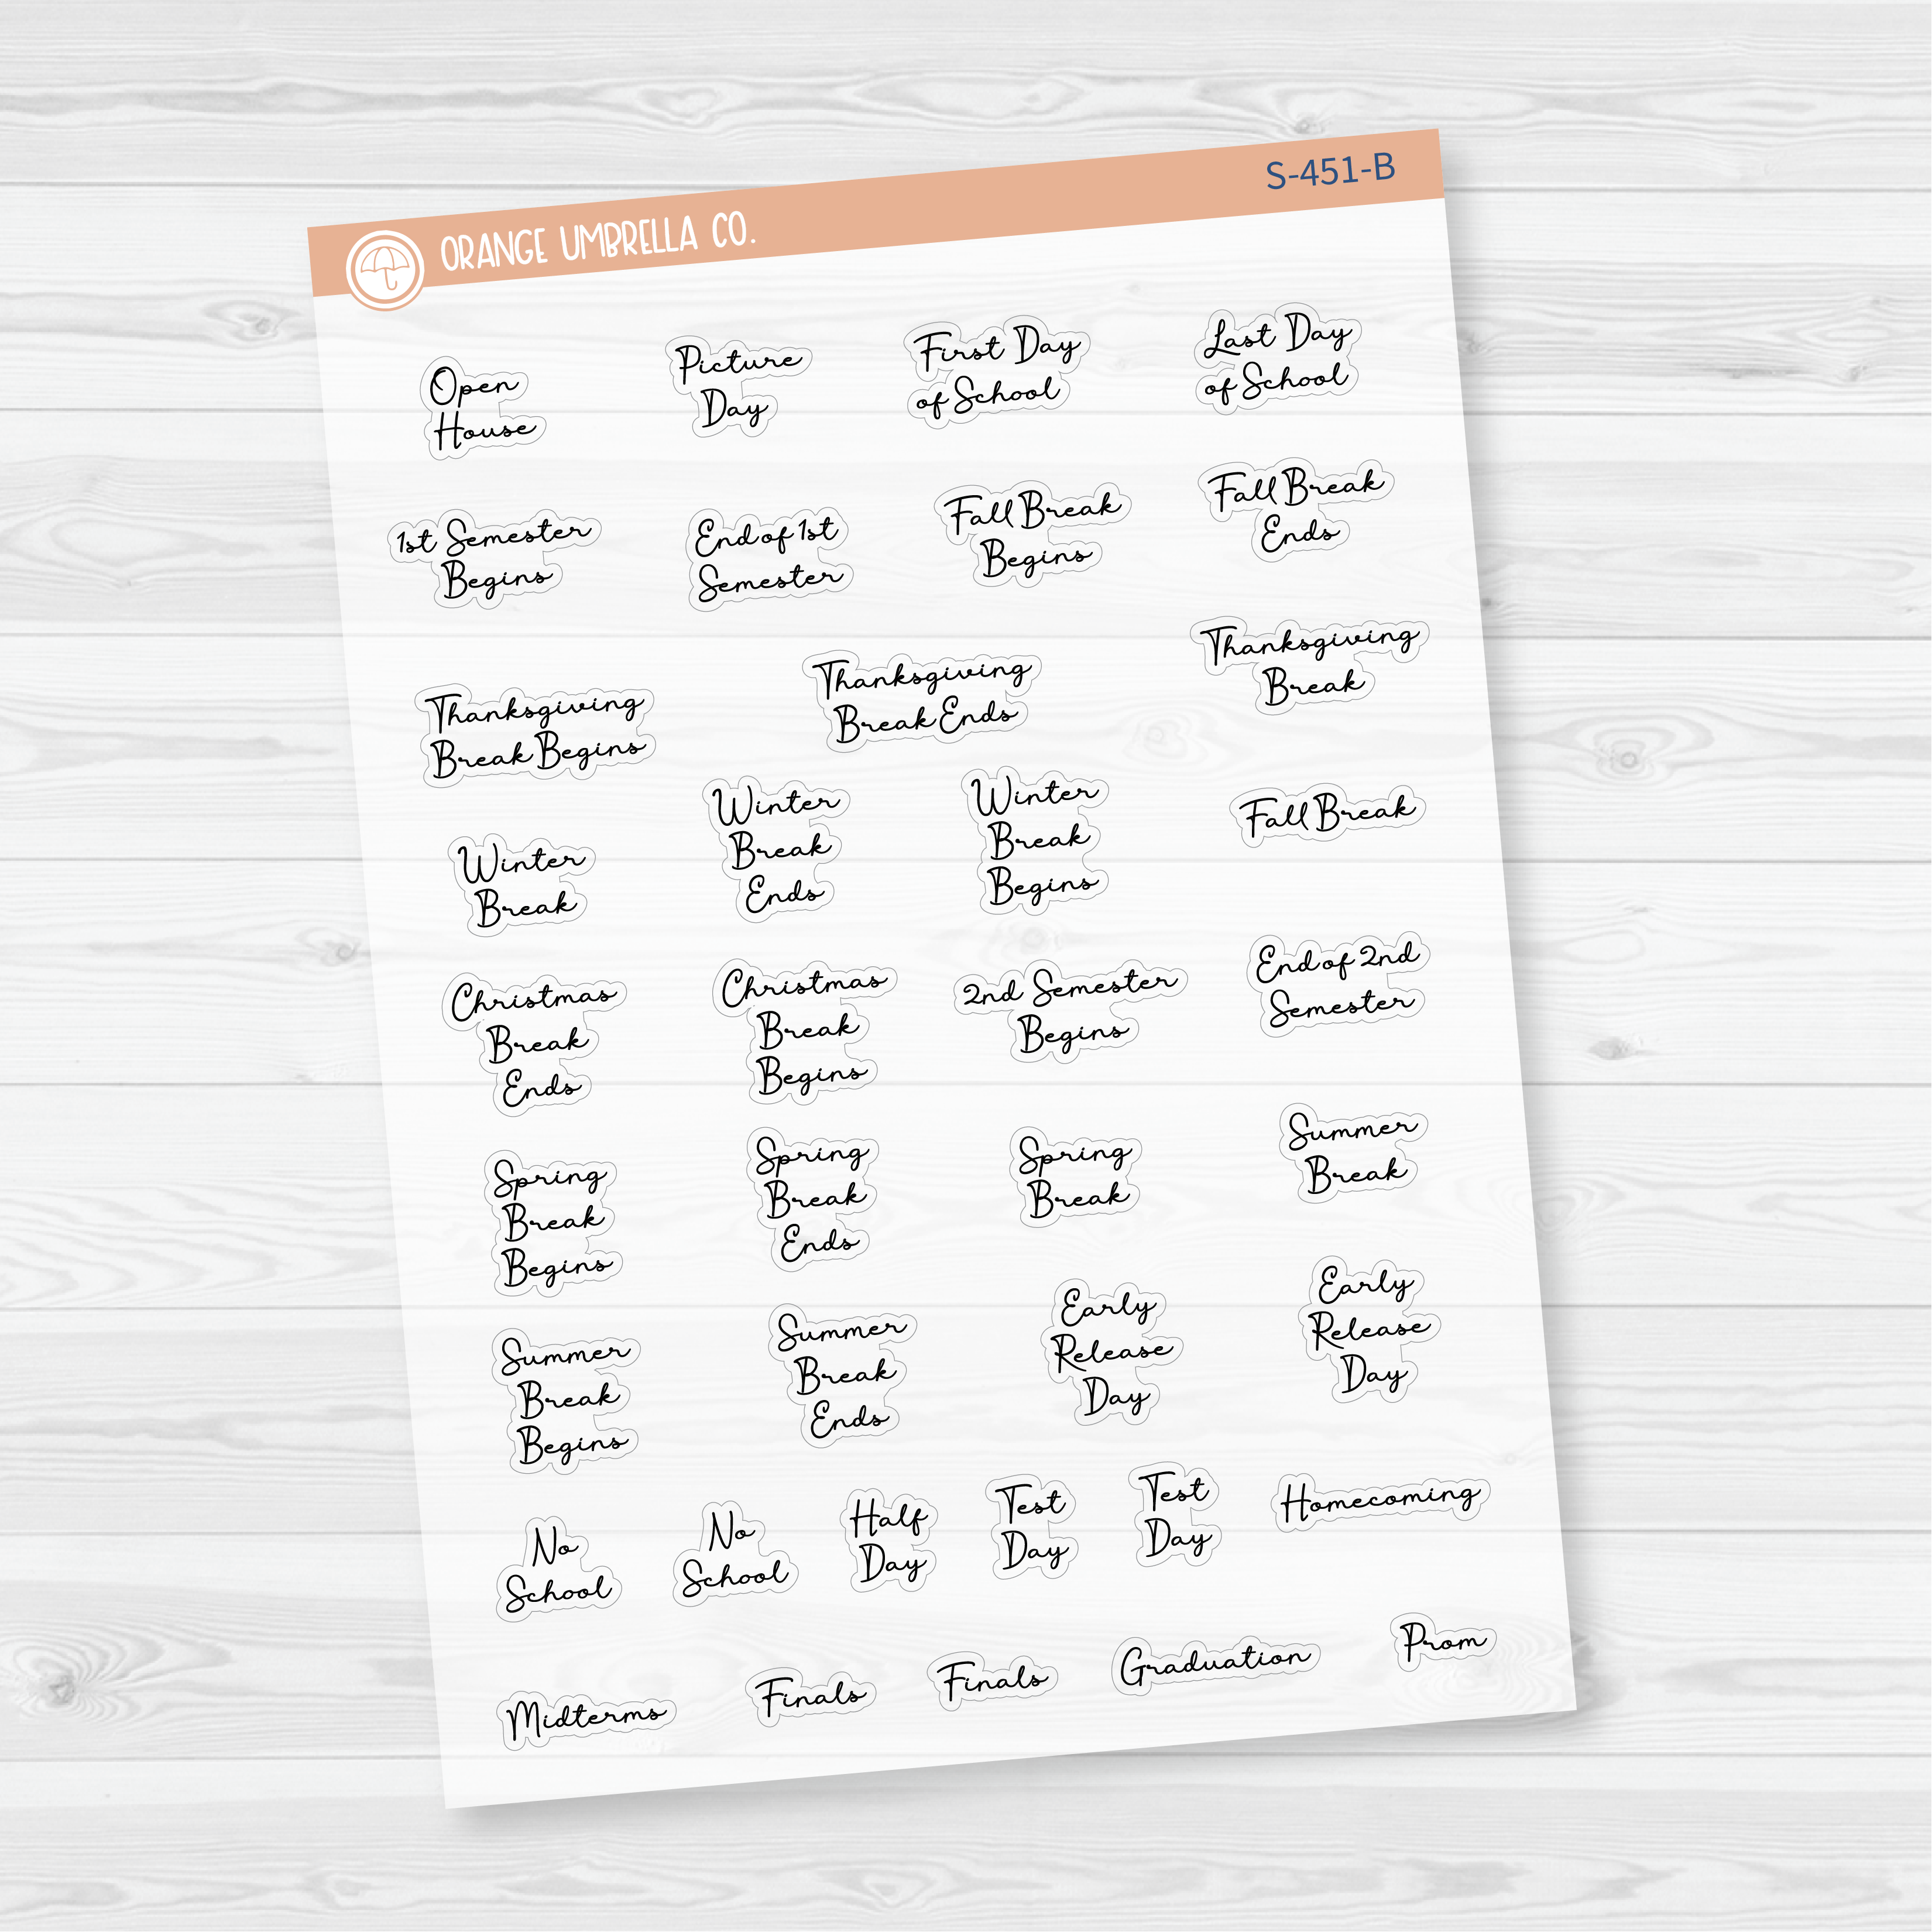 ORANGE UMBRELLA CO.
S-451-B
Open
House
Picture
Day
First Day
of School
Last Day
of School
1st Semester
Begins
End of 1st
Semester
Fall Break
Begins
Fall Break
Ends
Thanksgiving
Break Begins
Thanksgiving
Break Ends
Thanksgiving
Break
Winter
Break
Winter
Break
Ends
Winter
Break
Begins
Fall Break
Christmas
Break
Ends
Christmas
Break
Begins
2nd Semester
Begins
End of 2nd
Semester
Spring
Break
Begins
Spring
Break
Ends
Spring
Break
Summer
Break
Summer
Break
Begins
Summer
Break
Ends
Early
Release
Day
Early
Release
Day
No
School
No
School
Half
Day
Test
Day
Test
Day
Homecoming
Midterms
Finals
Finals
Graduation
Prom